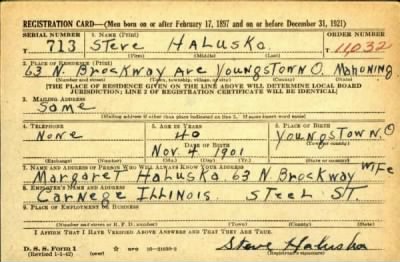 REGISTRATION CARD—(Men born on or after February 17, 1897 and on or before December 31, 1921)
SERIAL NUMBER 1. NAME (Print) ORDER NUMBER
713 Steve Haluska 11032
(First) (Middle) (Last)
2. PLACE OF RESIDENCE (Print)
63 N. Brockway Ave Youngstown O. Mahoning
(Number and street) (Town, township, village, or city) (County) (State)
[THE PLACE OF RESIDENCE GIVEN ON THE LINE ABOVE WILL DETERMINE LOCAL BOARD
JURISDICTION; LINE 2 OF REGISTRATION CERTIFICATE WILL BE IDENTICAL]
3. MAILING ADDRESS
Same
[Mailing address if other than place indicated on line 2. If same insert word same]
4. TELEPHONE 5. AGE IN YEARS 6. PLACE OF BIRTH
None 40 Youngstown. O
DATE OF BIRTH (Town or county)
Nov. 4 1901
(Exchange) (Number) (Mo.) (Day) (Yr.) (State or country)
7. NAME AND ADDRESS OF PERSON WHO WILL ALWAYS KNOW YOUR ADDRESS
Margaret Haluska 63 N Brockway wife
8. EMPLOYER'S NAME AND ADDRESS
Carnege Illinois Steel St.
9. PLACE OF EMPLOYMENT OR BUSINESS
(Number and street or R. F. D. number) (Town) (County) (State)
I AFFIRM THAT I HAVE VERIFIED ABOVE ANSWERS AND THAT THEY ARE TRUE.
D. S. S. Form 1
(Revised 1-1-42) Steve Haluska
(Registrant's signature)